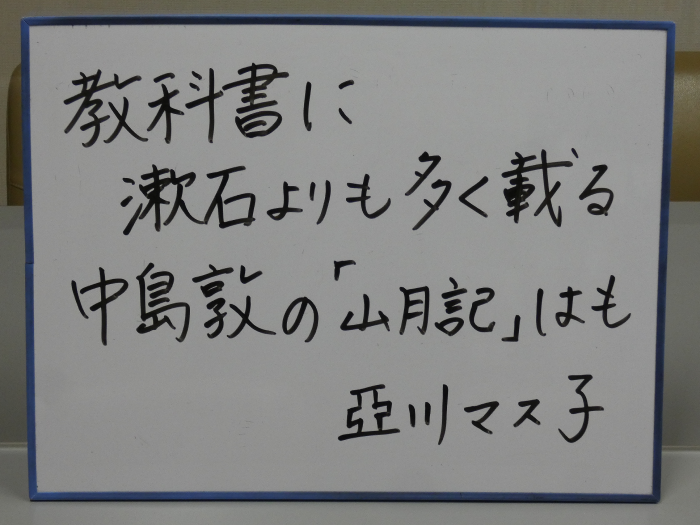 教科書に
漱石よりも多く載る
中島敦の「山月記」はも
亞川マス子